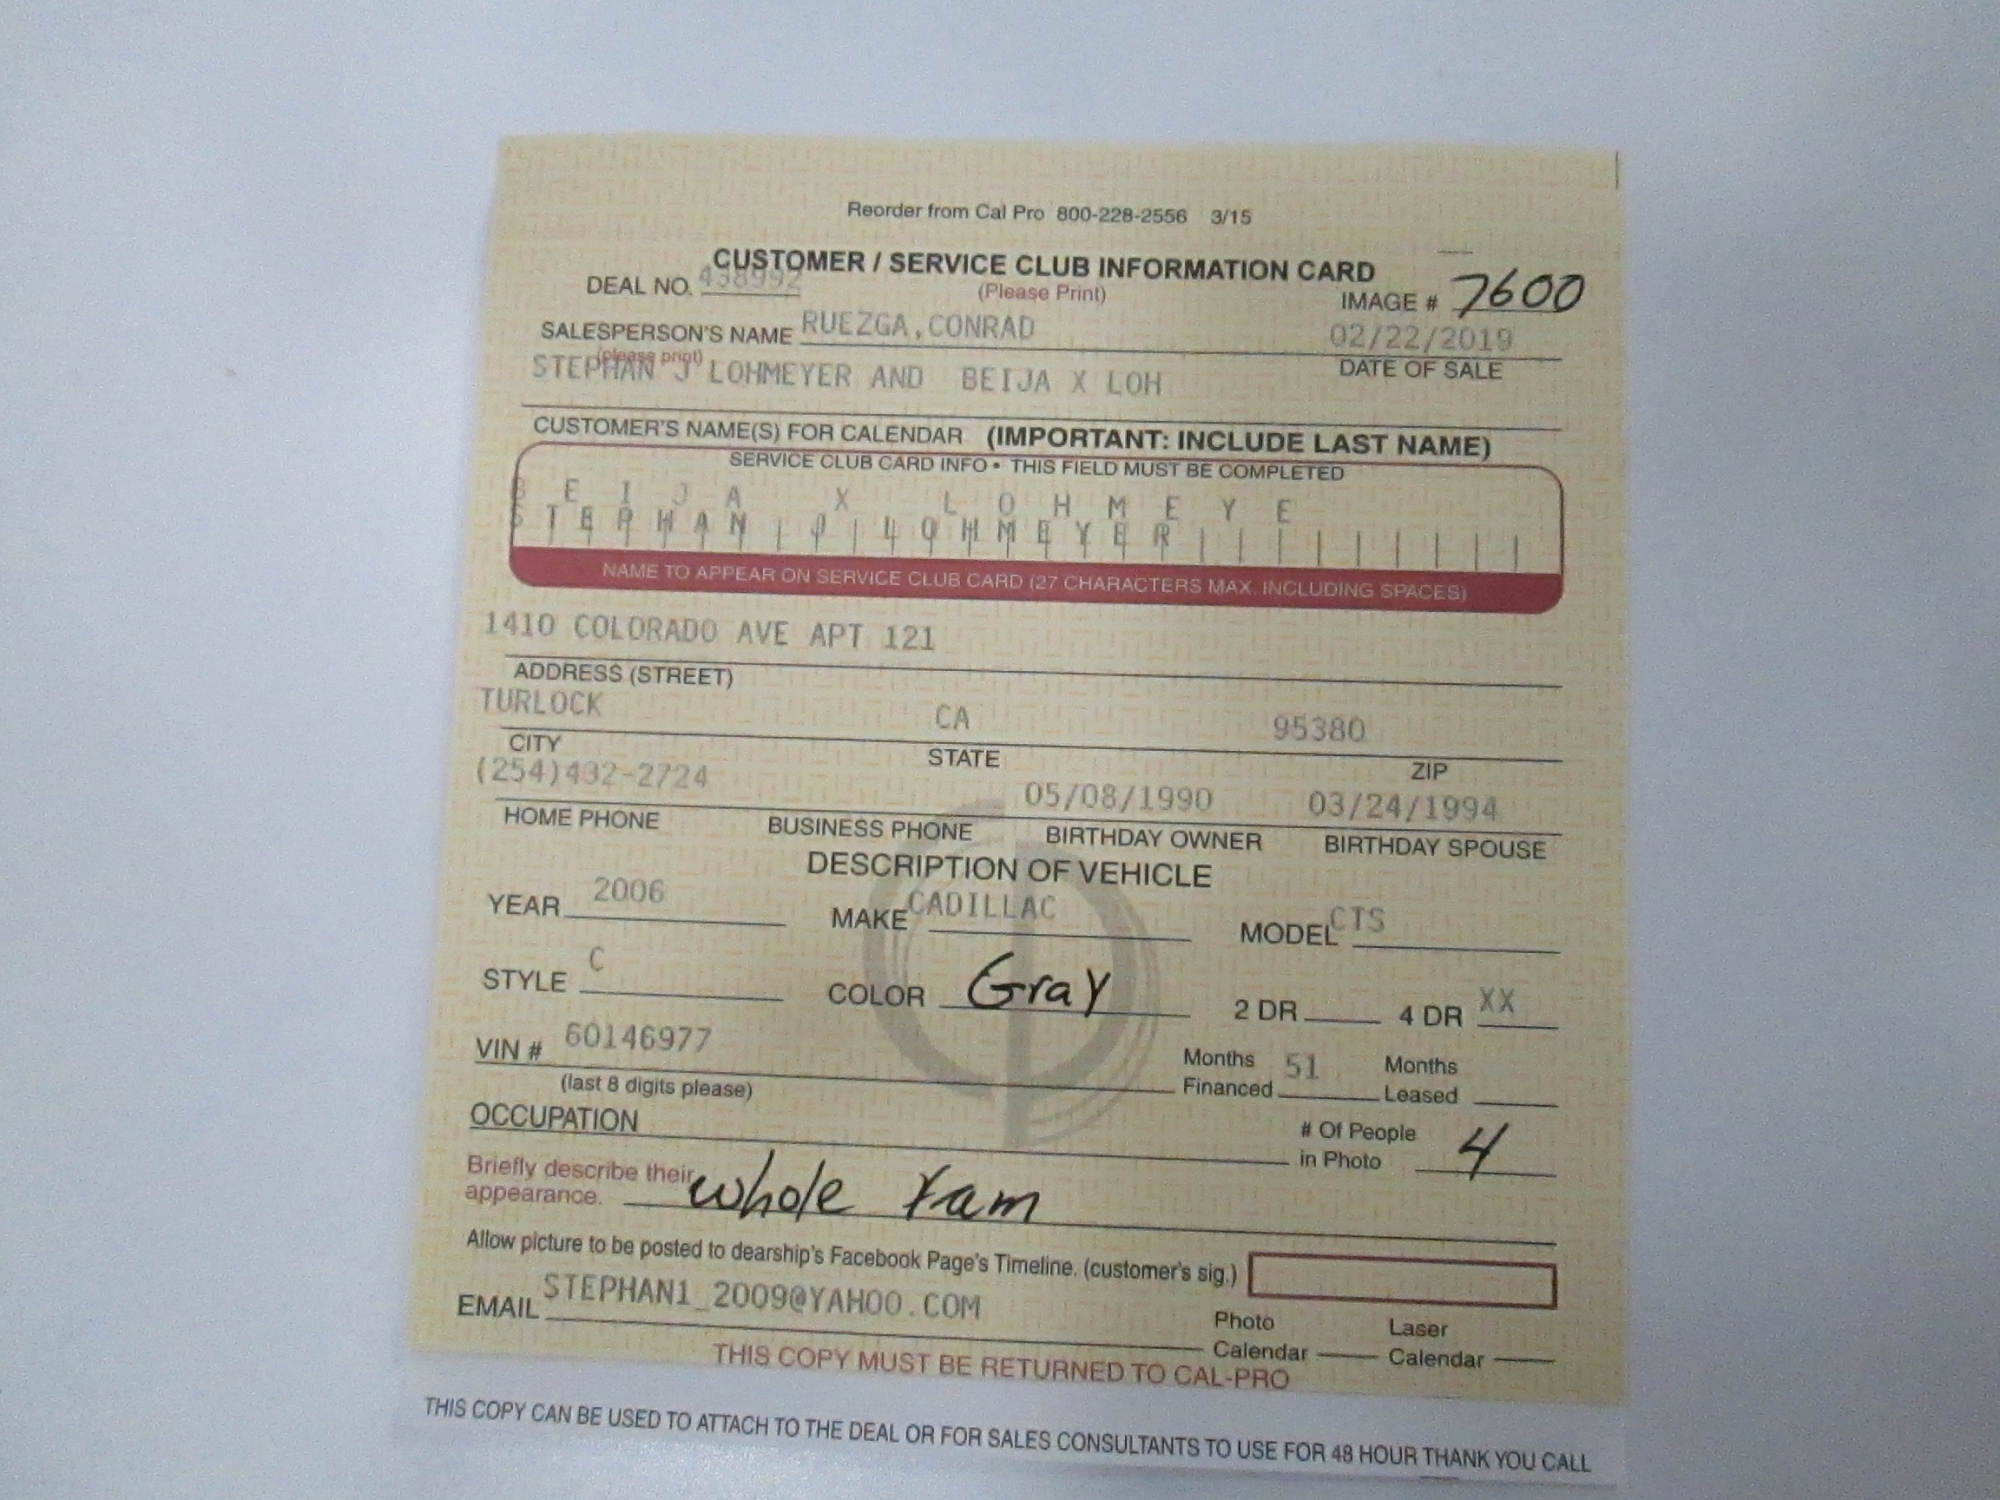 Reorder from Cal Pro 800-228-2556 3/15
CUSTOMER / SERVICE CLUB INFORMATION CARD
DEAL NO. 438992 (Please Print) IMAGE # 7600
SALESPERSON'S NAME RUEZGA,CONRAD 02/22/2019
(please print) DATE OF SALE
STEPHAN J LOHMEYER AND BEIJA X LOH
CUSTOMER'S NAME(S) FOR CALENDAR (IMPORTANT: INCLUDE LAST NAME)
SERVICE CLUB CARD INFO • THIS FIELD MUST BE COMPLETED
BEIJA X LOHMEYE
STEPHAN J LOHMEYER
NAME TO APPEAR ON SERVICE CLUB CARD (27 CHARACTERS MAX. INCLUDING SPACES)
1410 COLORADO AVE APT 121
ADDRESS (STREET)
TURLOCK CA 95380
CITY STATE ZIP
(254)432-2724 05/08/1990 03/24/1994
HOME PHONE BUSINESS PHONE BIRTHDAY OWNER BIRTHDAY SPOUSE
DESCRIPTION OF VEHICLE
YEAR 2006 MAKE CADILLAC MODEL CTS
STYLE C COLOR Gray 2 DR 4 DR XX
VIN # 60146977 Months Financed 51 Months Leased
(last 8 digits please)
OCCUPATION # Of People in Photo 4
Briefly describe their appearance. whole fam
Allow picture to be posted to dearship's Facebook Page's Timeline. (customer's sig.)
EMAIL STEPHAN1_2009@YAHOO.COM Photo Calendar Laser Calendar
THIS COPY MUST BE RETURNED TO CAL-PRO
THIS COPY CAN BE USED TO ATTACH TO THE DEAL OR FOR SALES CONSULTANTS TO USE FOR 48 HOUR THANK YOU CALL